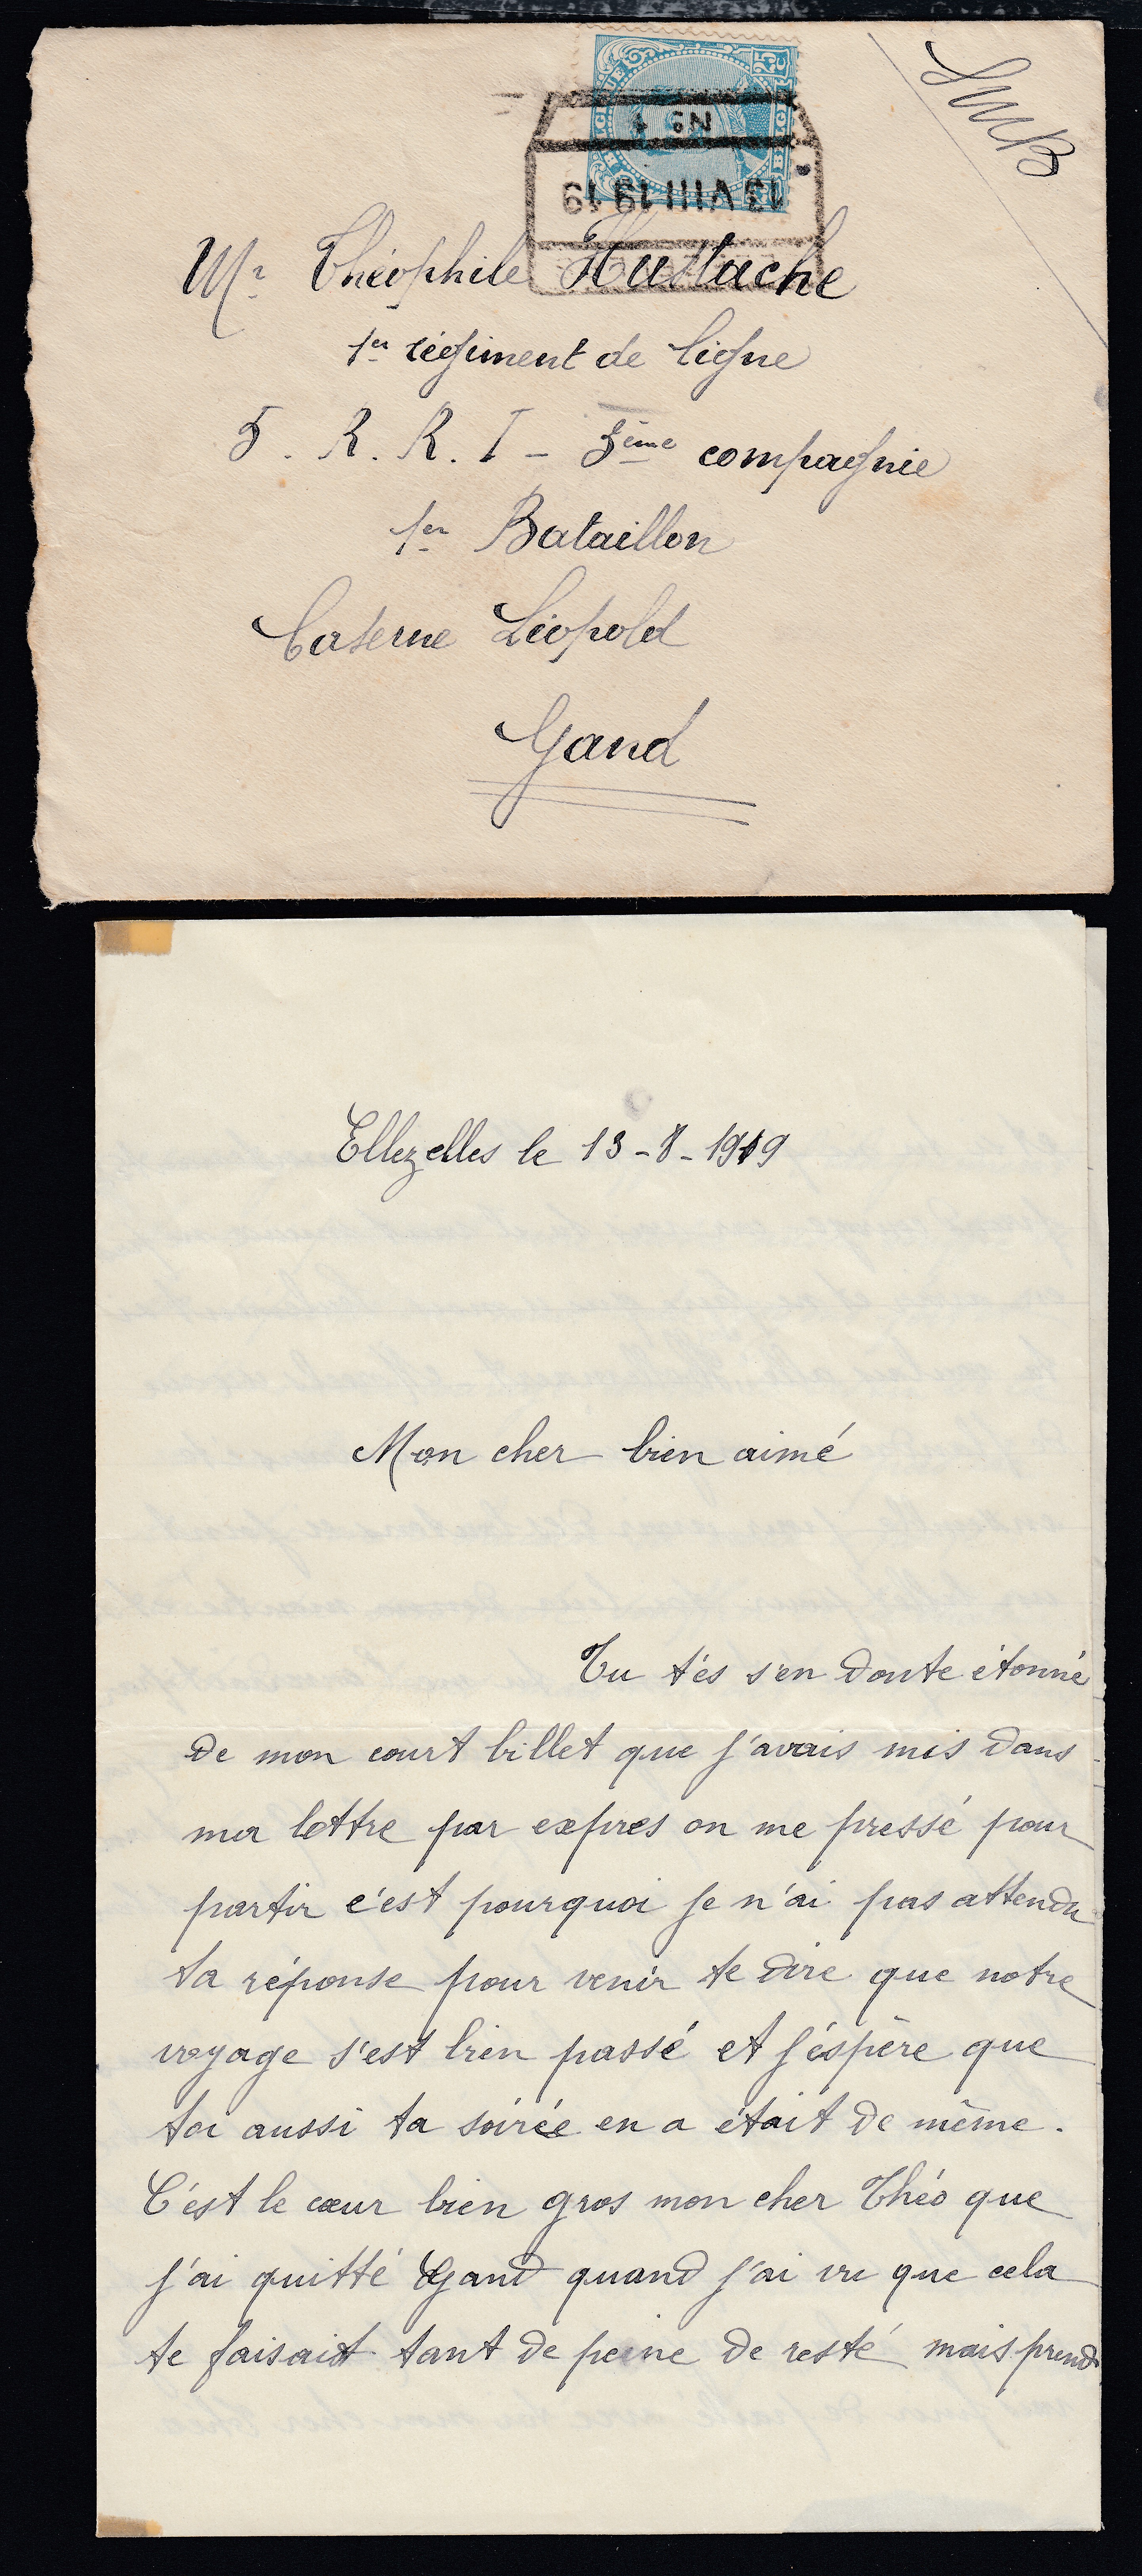 BELGIQUE 25 C BELGIË
N3 1
13 VIII 19 19
SMB
Mr Théophile Hustache
1er régiment de ligne
5. R. R. I - 3ème compagnie
1er Bataillon
Caserne Léopold
Gand
Ellezelles le 13-8-1919
Mon cher bien aimé
Tu t'és s'en doute étonné
de mon court billet que j'avais mis dans
ma lettre par expres on me pressé pour
partir c'est pourquoi je n'ai pas attendu
ta réponse pour venir te dire que notre
voyage s'est bien passé et j'éspère que
toi aussi ta soirée en a était de même.
C'est le cœur bien gros mon cher Théo que
j'ai quitté Gand quand j'ai vu que cela
te faisait tant de peine de resté mais prend